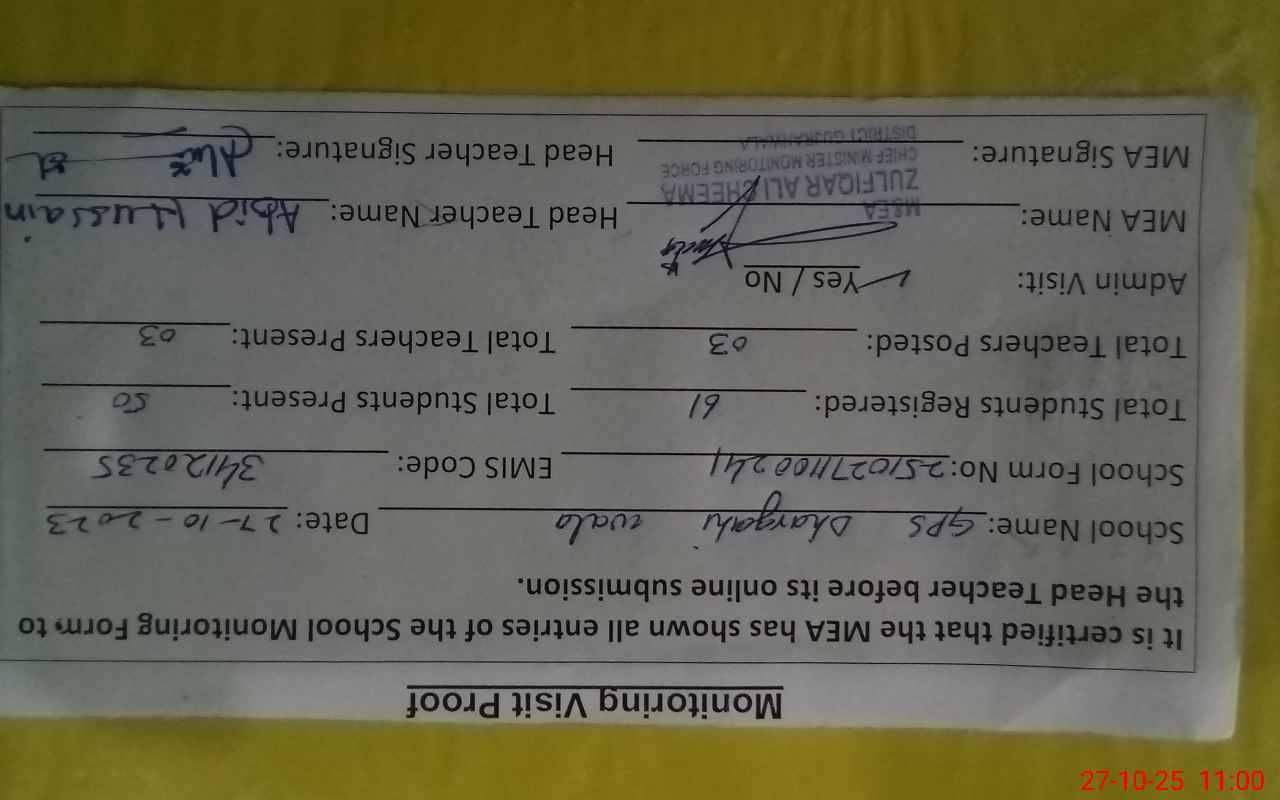 Monitoring Visit Proof
It is certified that the MEA has shown all entries of the School Monitoring Form to
the Head Teacher before its online submission.
School Name: GPS Dhargahi wala Date: 27-10-2023
School Form No: 25102711100241 EMIS Code: 34120235
Total Students Registered: 61 Total Students Present: 50
Total Teachers Posted: 03 Total Teachers Present: 03
Admin Visit: Yes / No
MEA Name: Head Teacher Name: Abid Hussain
M&EA
ZULFIQAR ALI CHEEMA
CHIEF MINISTER MONITORING FORCE
DISTRICT GUJRANWALA
MEA Signature: Head Teacher Signature:
27-10-25 11:00